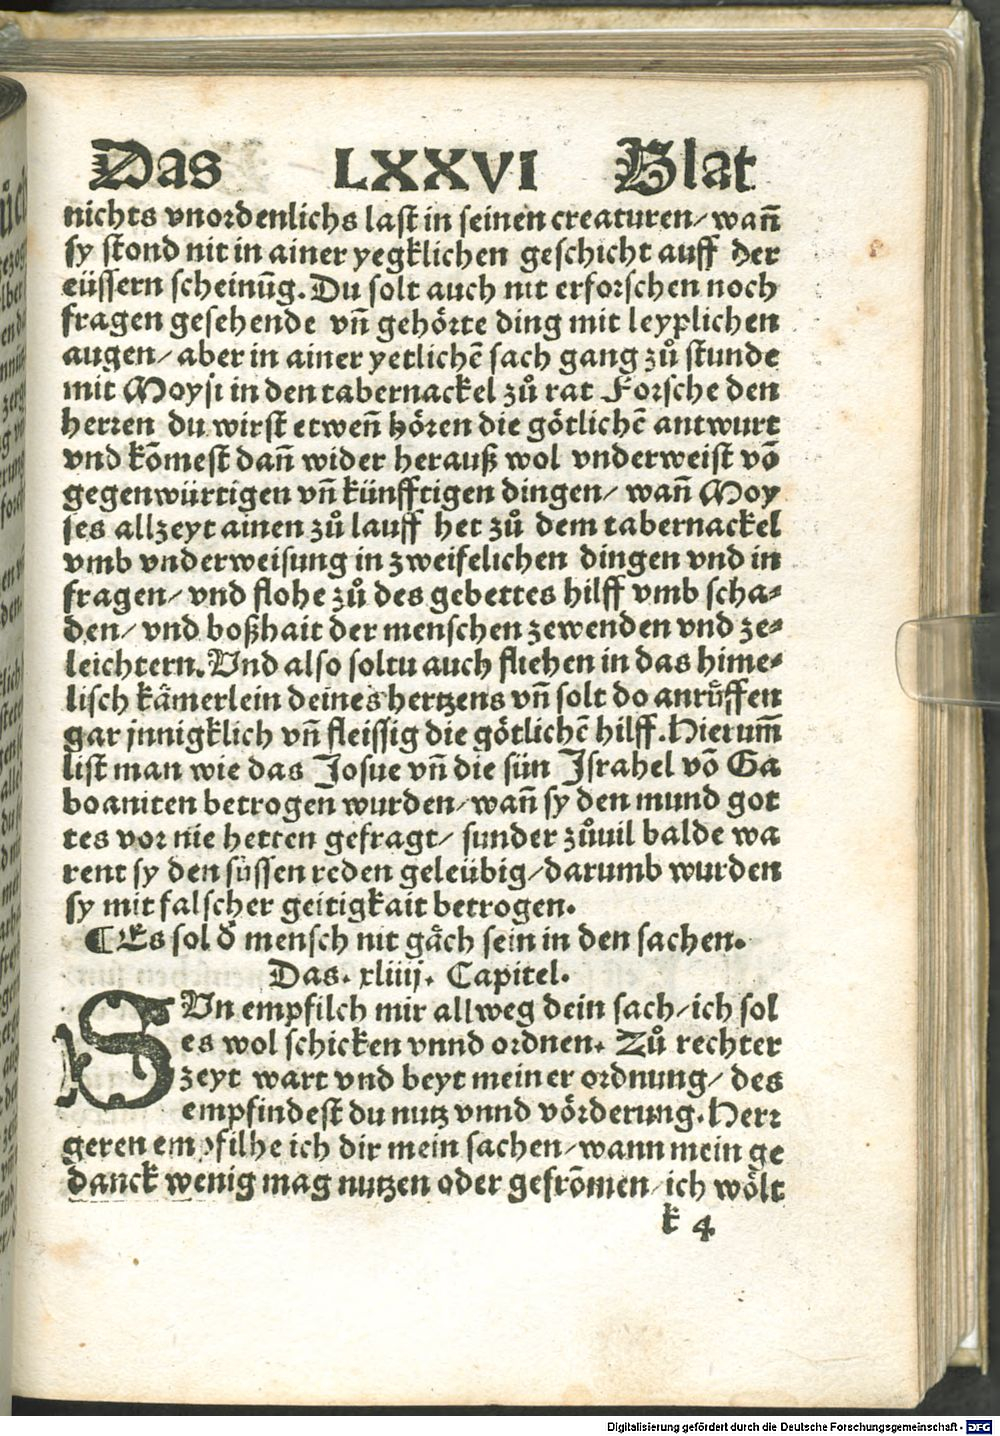 Das LXXVI Blat
nichts vnordenlichs last in seinen creaturen/ wañ
sy stond nit in ainer yegklichen geschicht auff der
eüssern scheinūg. Du solt auch nit erforschen noch
fragen gesehende vñ gehörte ding mit leyplichen
augen/ aber in ainer yetlichē sach gang zů stunde
mit Moysi in den tabernackel zů rat Forsche den
herren du wirst etweñ hören die götlichē antwurt
vnd kōmest dañ wider herauß wol vnderweist vō
gegenwürtigen vñ künfftigen dingen/ wañ Moy
ses allzeyt ainen zů lauff het zů dem tabernackel
vmb vnderweisung in zweifelichen dingen vnd in
fragen/ vnd flohe zů des gebettes hilff vmb scha⸗
den/ vnd boßhait der menschen zewenden vnd ze⸗
leichtern. Vnd also soltu auch fliehen in das hime⸗
lisch kämerlein deines hertzens vñ solt do anrůffen
gar jnnigklich vñ fleissig die götlichē hilff. Hierum̄
list man wie das Josue vñ die sün Israhel vō Ga
boaniten betrogen wurden/ wañ sy den mund got
tes vor nie hetten gefragt/ sunder zůuil balde wa
rent sy den süssen reden geleübig/ darumb wurden
sy mit falscher geitigkait betrogen.
¶ Es sol d̄ mensch nit gäch sein in den sachen.
Das. xliiij. Capitel.
SVn empfilch mir allweg dein sach/ ich sol
es wol schicken vnnd ordnen. Zů rechter
zeyt wart vnd beyt meiner ordnung/ des
empfindest du nutz vnnd vörderung. Herr
geren empfilhe ich dir mein sachen/ wann mein ge
danck wenig mag nutzen oder gefrōmen/ ich wölt
k 4
Digitalisierung gefördert durch die Deutsche Forschungsgemeinschaft - DFG